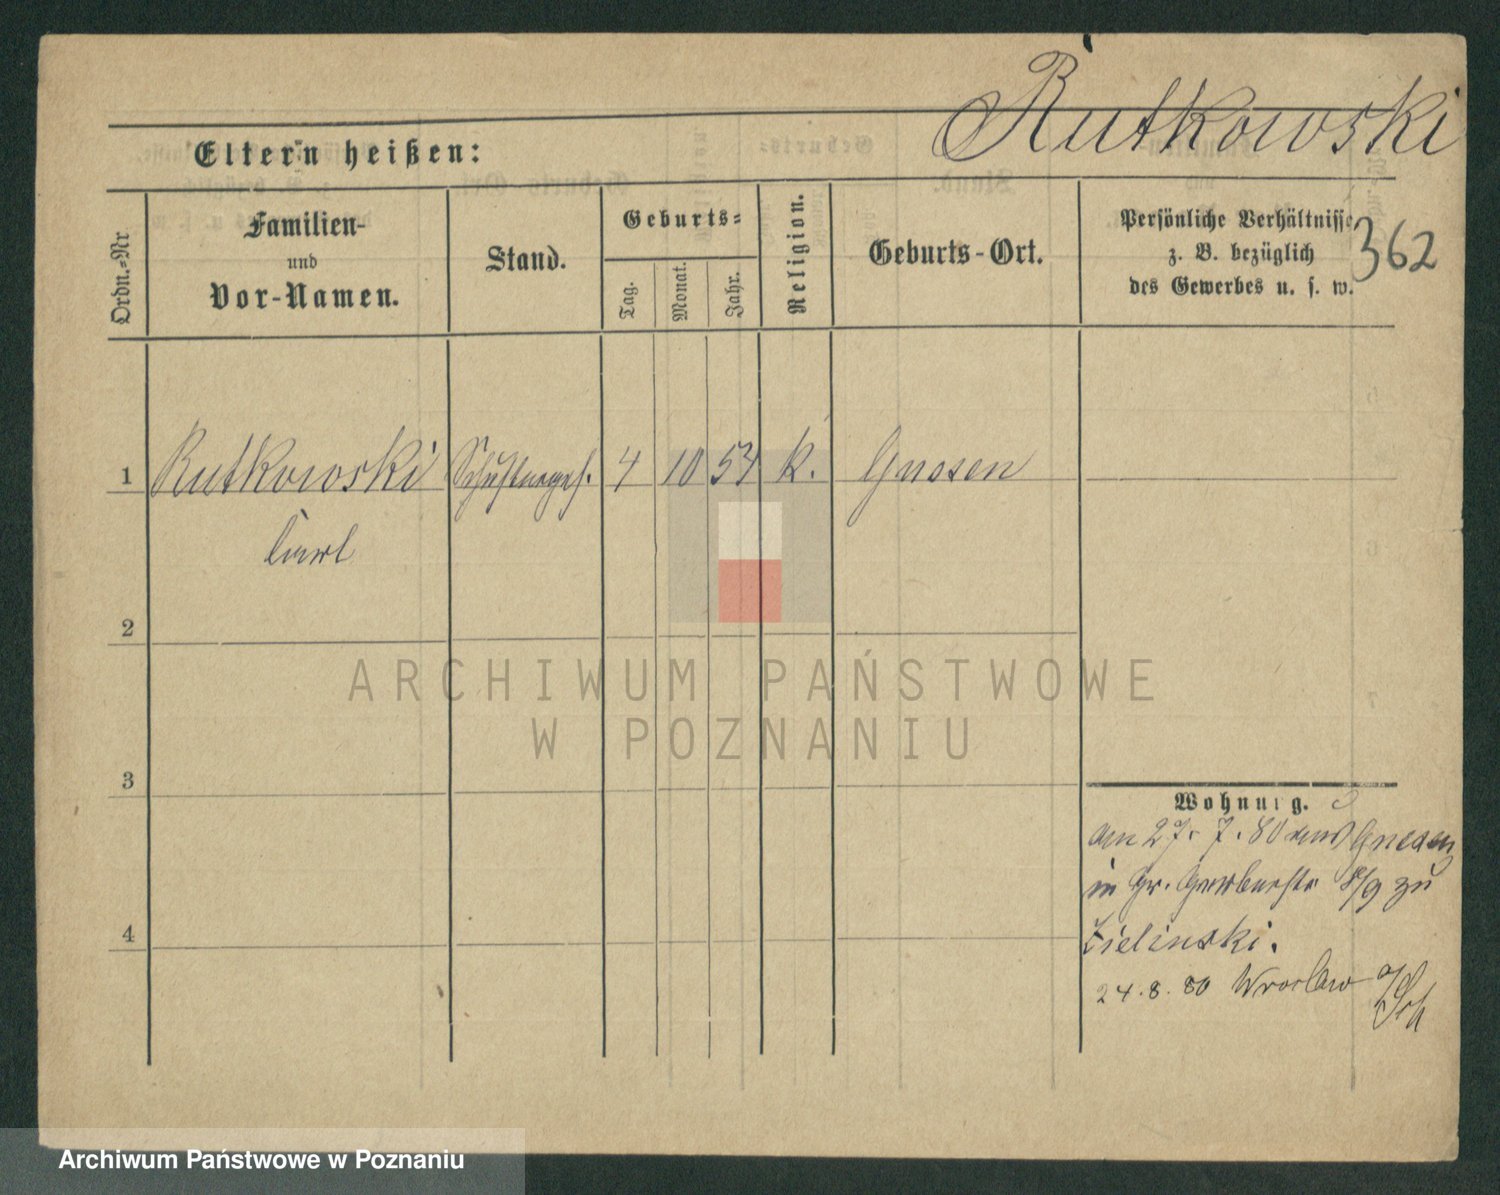 Rutkowski
Eltern heißen:
Ordn.-Nr
Familien-
und
Vor-Namen.
Stand.
Geburts-
Tag.
Monat.
Jahr.
Religion.
Geburts-Ort.
Persönliche Verhältnisse
z. B. bezüglich
des Gewerbes u. s. w.
362
1 Rutkowski Schusterges. 4 10 54 k. Gnesen
Carl
2
ARCHIWUM PAŃSTWOWE
W POZNANIU
3
Wohnung.
an 27. 7. 80 aus Gnesen
in Gr. Gerberstr 8/9 zu
Zielinski.
4
24. 8. 80 Wroclaw
Archiwum Państwowe w Poznaniu